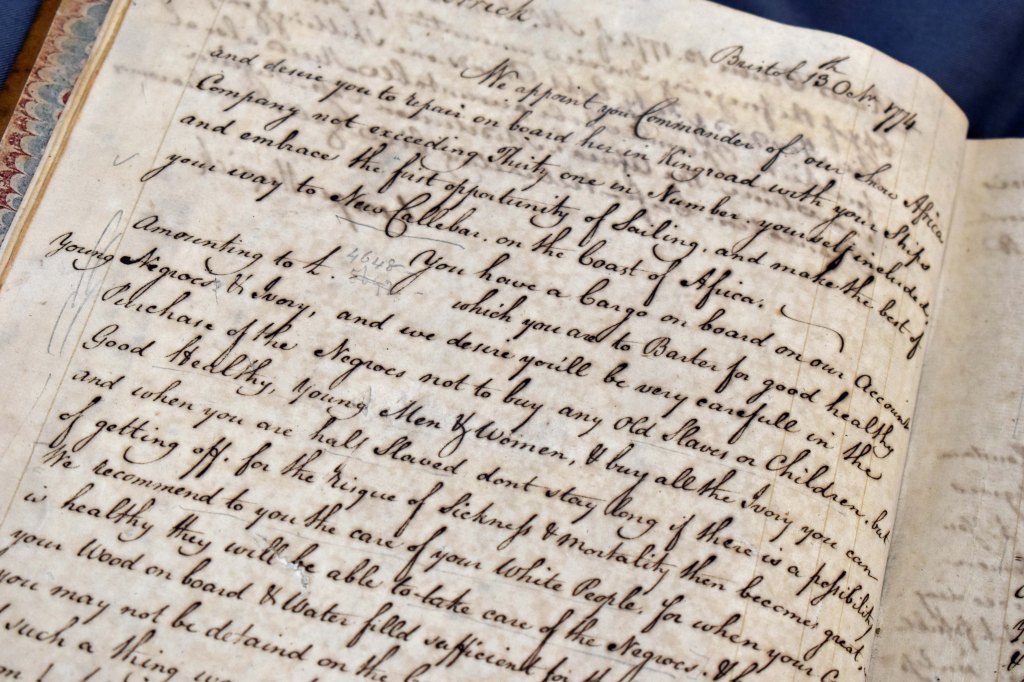 Bristol 13th Octr. 1774
We appoint you Commander of our Snow Africa
and desire you to repair on board her in Kingroad with your Ships
Company not exceeding Thirty one in Number yourself included,
and embrace the first opportunity of Sailing, and make the best of
your way to New Callebar, on the Coast of Africa.
You have a Cargo on board on our Accounts
Amounting to £. 4648 which you are to Barter for good healthy
Young Negroes & Ivory, and we desire you'll be very carefull in the
Purchase of the Negroes not to buy any Old Slaves or Children, but
Good Healthy, Young Men & Women, & buy all the Ivory you can
and when you are half Slaved dont stay long if there is a possibility
of getting off. for the Risque of Sickness & Mortality then become great.
We recommend to you the care of your White People, for when your
is healthy they will be able to take care of the Negroes. &
your Wood on board & Water filld sufficient for
you may not be detaind on the
such a thing